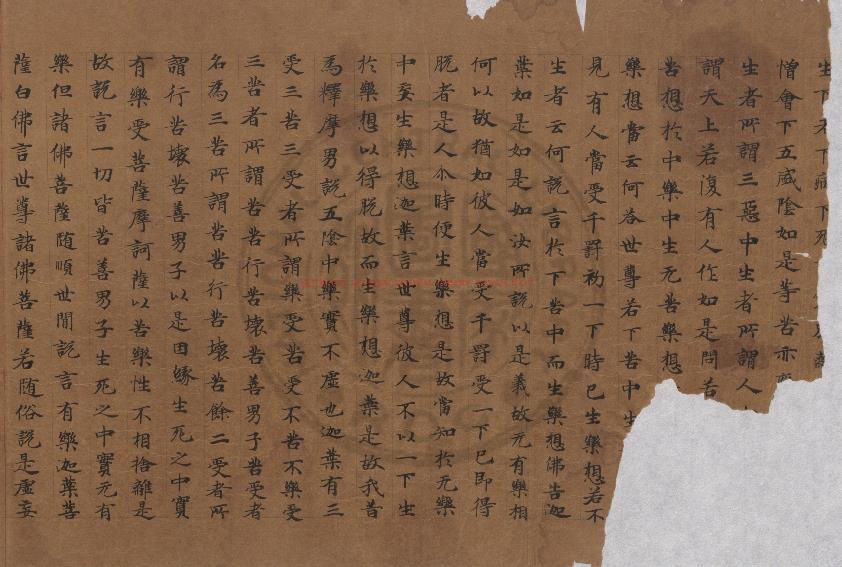 生下老下病下死
憎會下五盛陰如是等苦亦
生者所謂三惡中生者所謂人
謂天上若復有人作如是問若
苦想於中樂中生无苦樂想
樂想當云何荅世尊若下苦中生
見有人當受千罰初一下時已生樂想若不
生者云何說言於下苦中而生樂想佛告迦
葉如是如是如汝所說以是義故无有樂相
何以故猶如彼人當受千罰受一下已即得
脫者是人尒時便生樂想是故當知於无樂
中妄生樂想迦葉言世尊彼人不以一下生
於樂想以得脫故而生樂想迦葉是故我昔
為釋摩男說五陰中樂實不虛也迦葉有三
受三苦三受者所謂樂受苦受不苦不樂受
三苦者所謂苦苦行苦壞苦善男子苦受者
名為三苦所謂苦苦行苦壞苦餘二受者所
謂行苦壞苦善男子以是因緣生死之中實
有樂受菩薩摩訶薩以苦樂性不相捨離是
故說言一切皆苦善男子生死之中實无有
樂但諸佛菩薩隨順世間說言有樂迦葉菩
薩白佛言世尊諸佛菩薩若隨俗說是虛妄